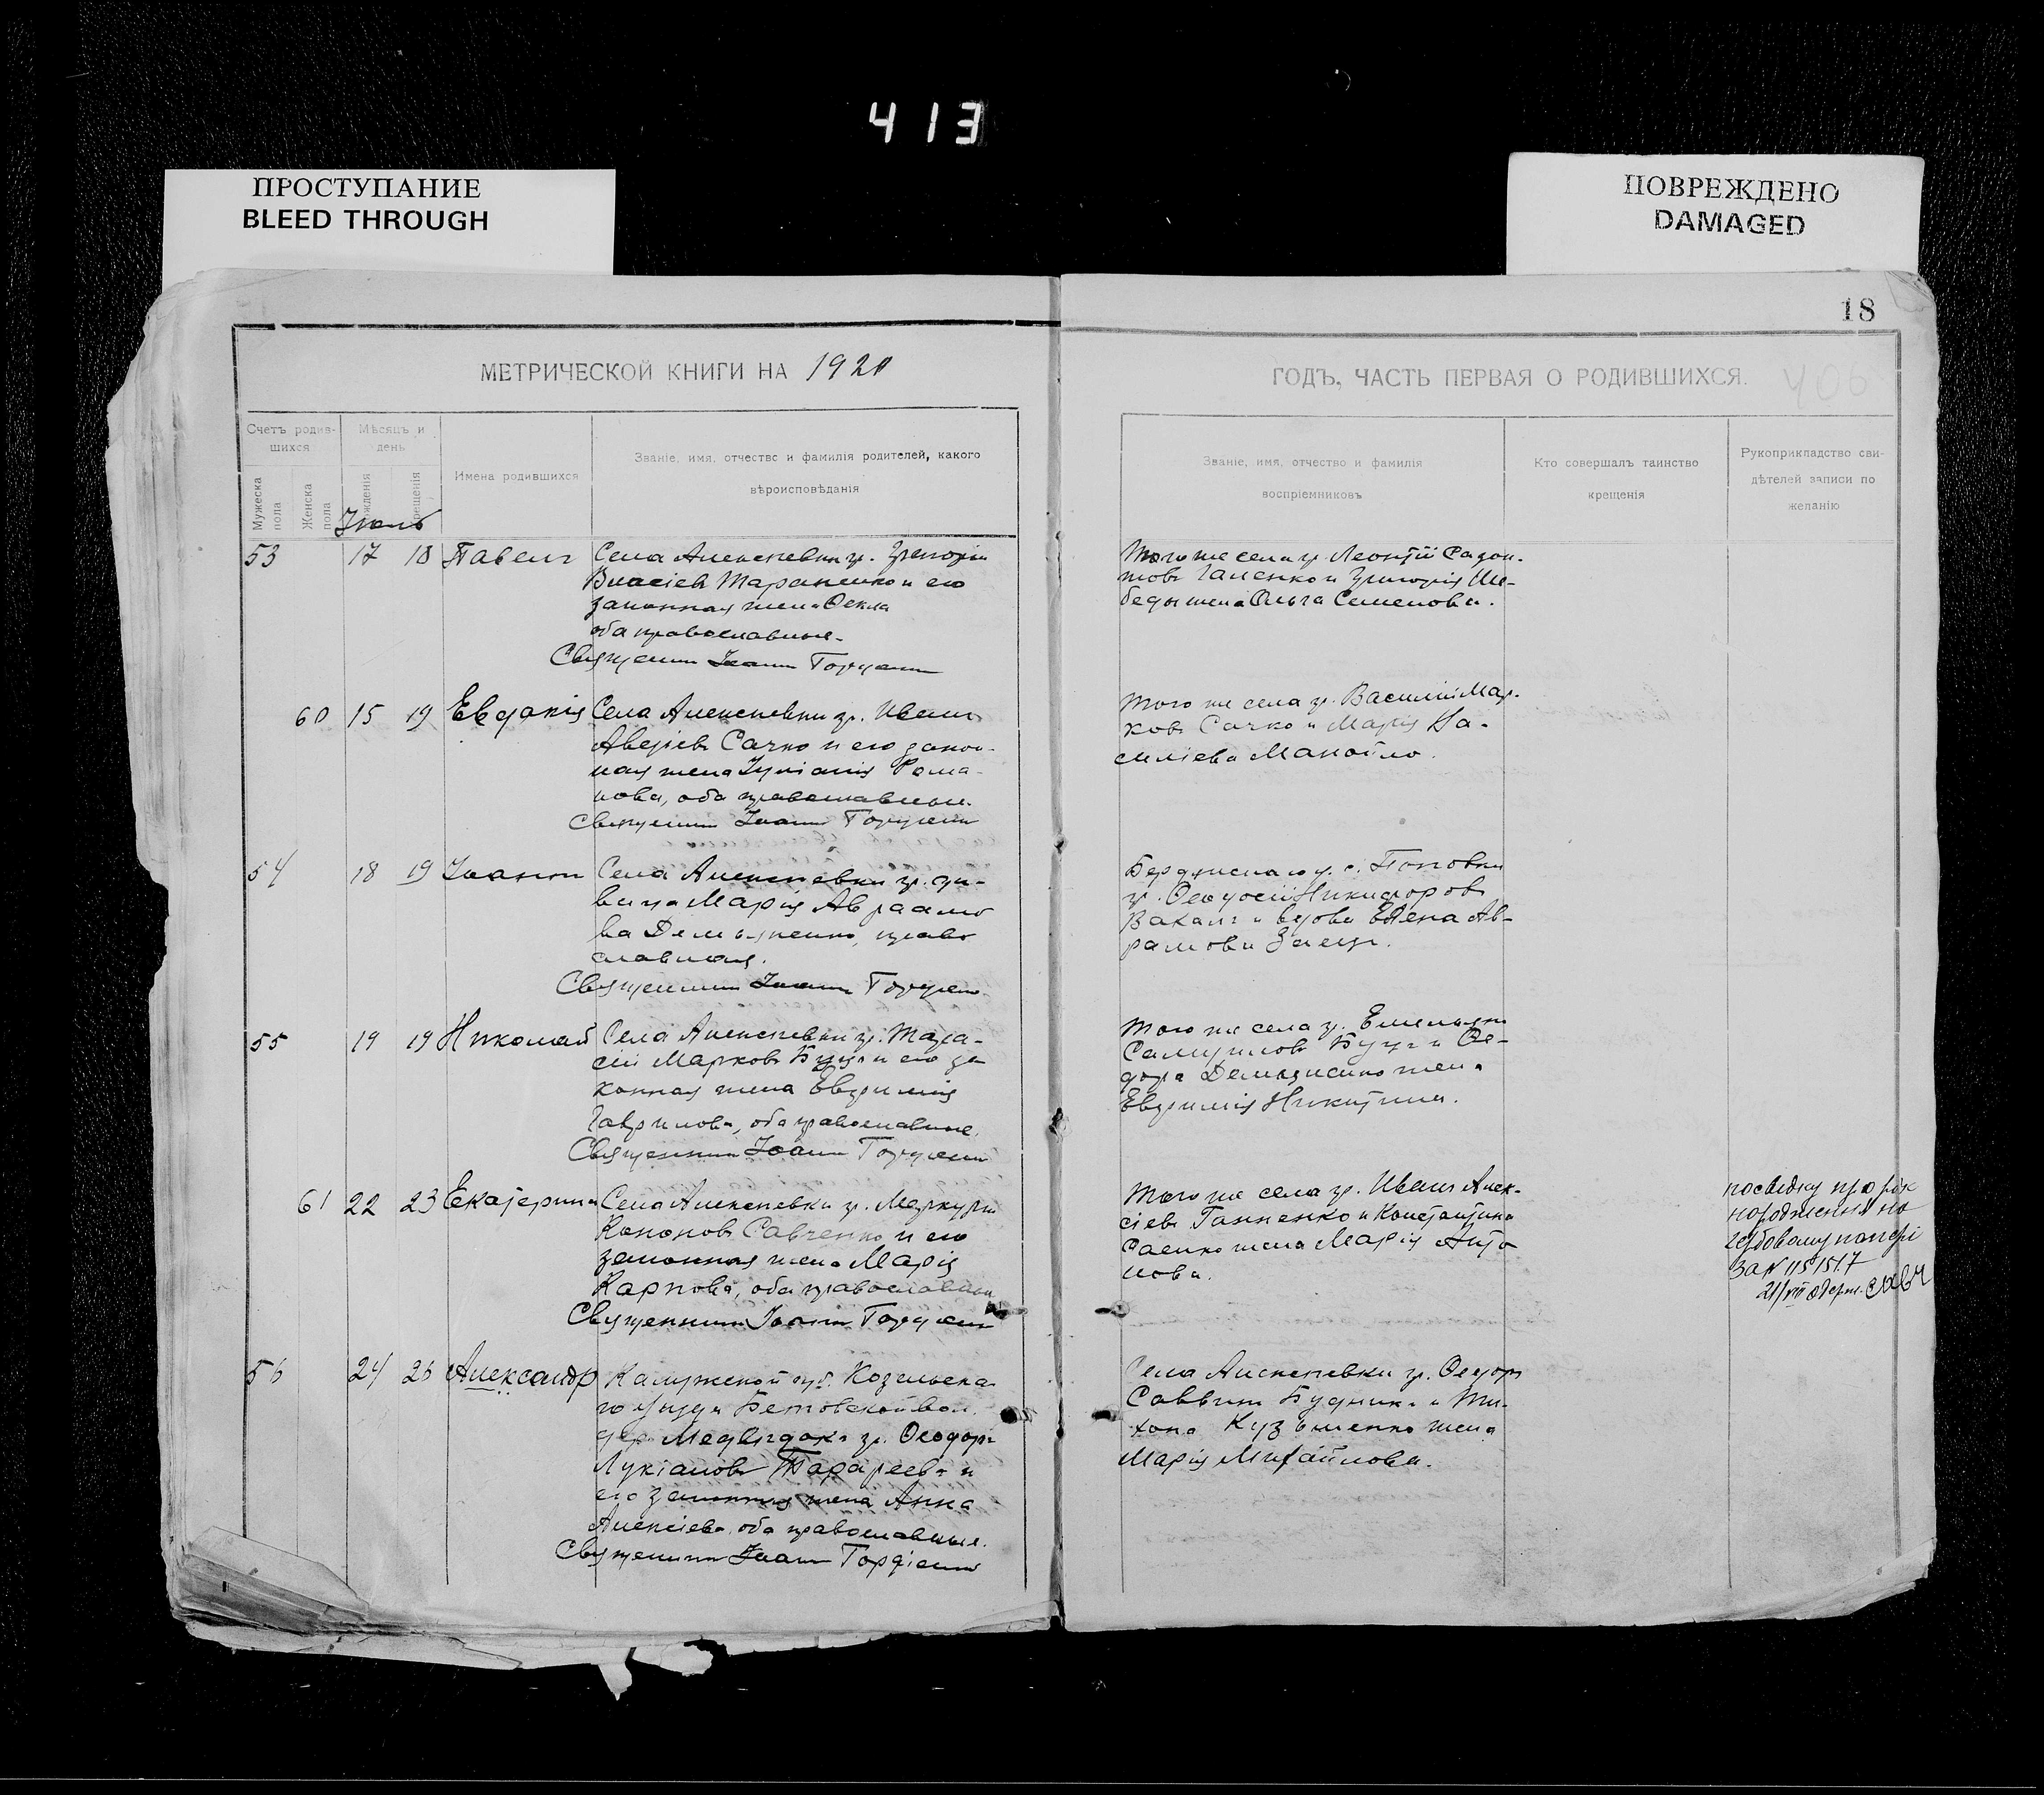 413
ПРОСТУПАНИЕ
BLEED THROUGH
ПОВРЕЖДЕНО
DAMAGED
18
МЕТРИЧЕСКОЙ КНИГИ НА 1920
ГОДЪ, ЧАСТЬ ПЕРВАЯ О РОДИВШИХСЯ.
406
Счетъ родив-
шихся
Мужеска
пола
Женска
пола
Мѣсяцъ и
день
рожденія
крещенія
Имена родившихся
Званіе, имя, отчество и фамилія родителей, какого
вѣроисповѣданія
Званіе, имя, отчество и фамилія
воспріемниковъ
Кто совершалъ таинство
крещенія
Рукоприкладство сви-
дѣтелей записи по
желанію
53 17 18 Павелъ
Села Алексеевки гр. Григорій
Власіевъ Тараненко и его
законная жена Ѳекла
оба православные.
Священник Іоанн Гордіенко
Того же села гр. Леонтій
Галенко и Григорія Ле-
беды жена Ольга Семенова.
60 15 19 Евдокія
Села Алексеевки гр. Иванъ
Сачко и его закон-
ная жена Рома-
нова, оба православные.
Священник Іоанн Гордіенко
Того же села гр. Василій Мар-
ковъ Сачко и Марія Ва-
силіева Манойло.
54 18 19 Іоаннъ
Села Алексеевки гр. дѣ-
вица Марія Авраамо
ва Демьяненко, право
славная.
Священник Іоанн Гордіенко
Бердянскаго у. с. Поповки
гр. Ѳеодосій Никифоровъ
и вдова Елена Ав-
рамова Заец.
55 19 19 Николай
Села Алексеевки гр. Тара-
сій Марковъ и его за
конная жена Евфимія
Гаврилова, оба православные.
Священник Іоанн Гордіенко
Того же села гр. Емельянъ
Самуиловъ и Ѳе-
дора Демьяненко жена
Евфимія Никитина.
61 22 23 Екатерина
Села Алексеевки гр. Меркурій
Кононовъ Савченко и его
законная жена Марія
Карпова, оба православные
Священник Іоанн Гордіенко
Того же села гр. Иванъ Алек-
сіевъ Ганненко и Константина
Саенко жена Марія Анто
нова.
посвідку про рік
народження на
гербовому папері
За № 115151.7
21/VIII одерж.
56 24 26 Александр
Калужской губ. Козельска-
го уезда Бетовской вол.
дер. гр. Ѳеодоръ
Лукіановъ и
его законная жена Анна
Алексіева, оба православные.
Священник Іоанн Гордіенко
Села Алексеевки гр. Ѳедоръ
Саввинъ Будник и Ти-
хона Кузьменко жена
Марія Михайлова.